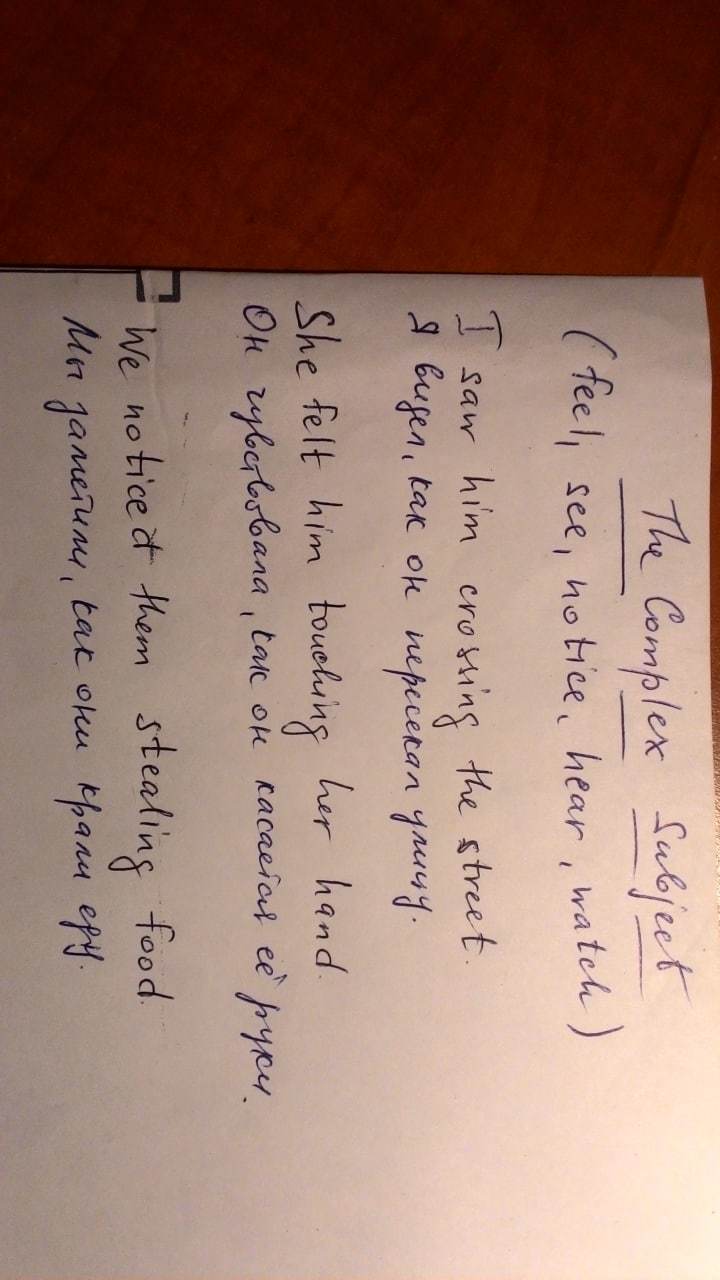 The Complex Subject
(feel, see, notice, hear, watch)
I saw him crossing the street.
Я видел, как он пересекал улицу.
She felt him touching her hand.
Он чувствовала, как он касается её руки.
We noticed them stealing food.
Мы заметили, как они крали еду.